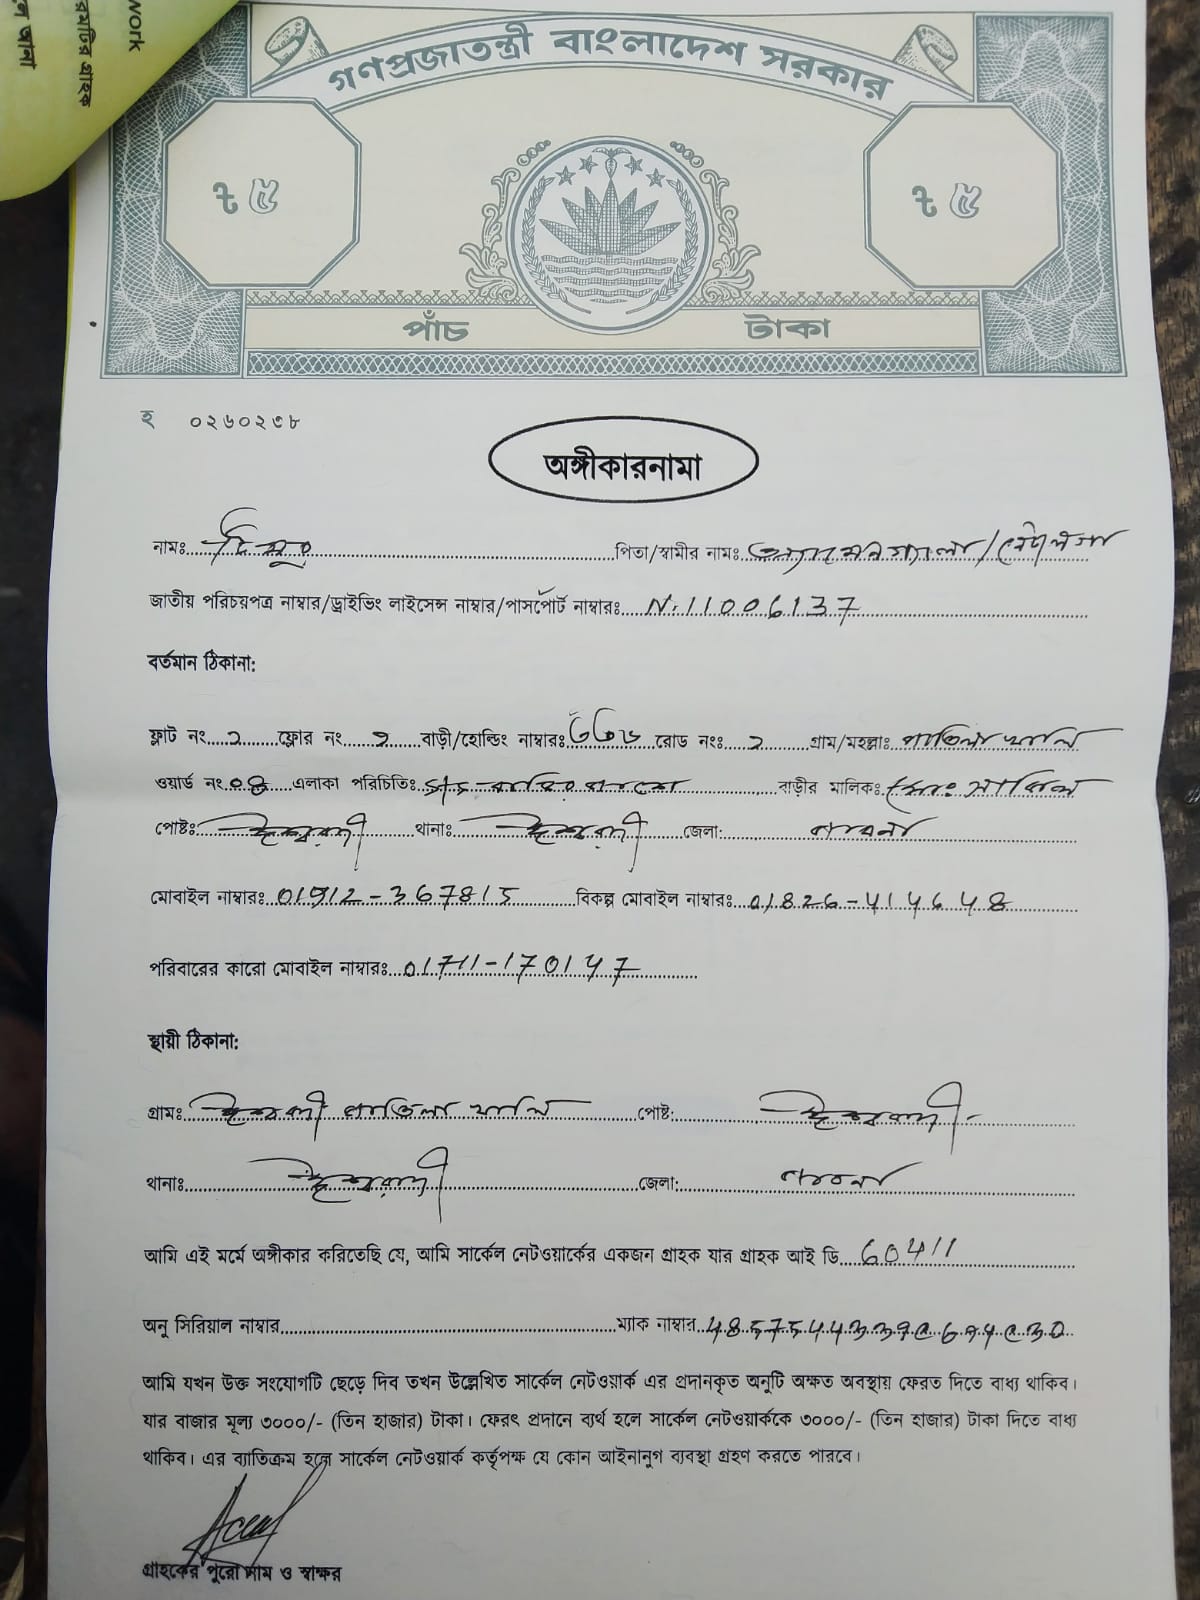 work
রমটির গ্রাহক
ল আনা
গণপ্রজাতন্ত্রী বাংলাদেশ সরকার
৳ ৫ ৳ ৫
পাঁচ টাকা
হ ০২৬০২৩৮
অঙ্গীকারনামা
নামঃ পিতা/স্বামীর নামঃ
জাতীয় পরিচয়পত্র নাম্বার/ড্রাইভিং লাইসেন্স নাম্বার/পাসপোর্ট নাম্বারঃ N.11006137
বর্তমান ঠিকানা:
ফ্লাট নং ২ ফ্লোর নং ২ বাড়ী/হোল্ডিং নাম্বারঃ রোড নংঃ ২ গ্রাম/মহল্লাঃ
ওয়ার্ড নং ০৪ এলাকা পরিচিতিঃ বাড়ীর মালিকঃ মোঃ
পোষ্টঃ ঈশ্বরদী থানাঃ ঈশ্বরদী জেলা: পাবনা
মোবাইল নাম্বারঃ 01912-367815 বিকল্প মোবাইল নাম্বারঃ 01826-414648
পরিবারের কারো মোবাইল নাম্বারঃ 01711-170147
স্থায়ী ঠিকানা:
গ্রামঃ ঈশ্বরদী পোষ্ট: ঈশ্বরদী
থানাঃ ঈশ্বরদী জেলা: পাবনা
আমি এই মর্মে অঙ্গীকার করিতেছি যে, আমি সার্কেল নেটওয়ার্কের একজন গ্রাহক যার গ্রাহক আই ডি 60411
অনু সিরিয়াল নাম্বার ম্যাক নাম্বার
আমি যখন উক্ত সংযোগটি ছেড়ে দিব তখন উল্লেখিত সার্কেল নেটওয়ার্ক এর প্রদানকৃত অনুটি অক্ষত অবস্থায় ফেরত দিতে বাধ্য থাকিব।
যার বাজার মূল্য ৩০০০/- (তিন হাজার) টাকা। ফেরৎ প্রদানে ব্যর্থ হলে সার্কেল নেটওয়ার্ককে ৩০০০/- (তিন হাজার) টাকা দিতে বাধ্য
থাকিব। এর ব্যাতিক্রম হলে সার্কেল নেটওয়ার্ক কর্তৃপক্ষ যে কোন আইনানুগ ব্যবস্থা গ্রহণ করতে পারবে।
গ্রাহকের পুরো নাম ও স্বাক্ষর